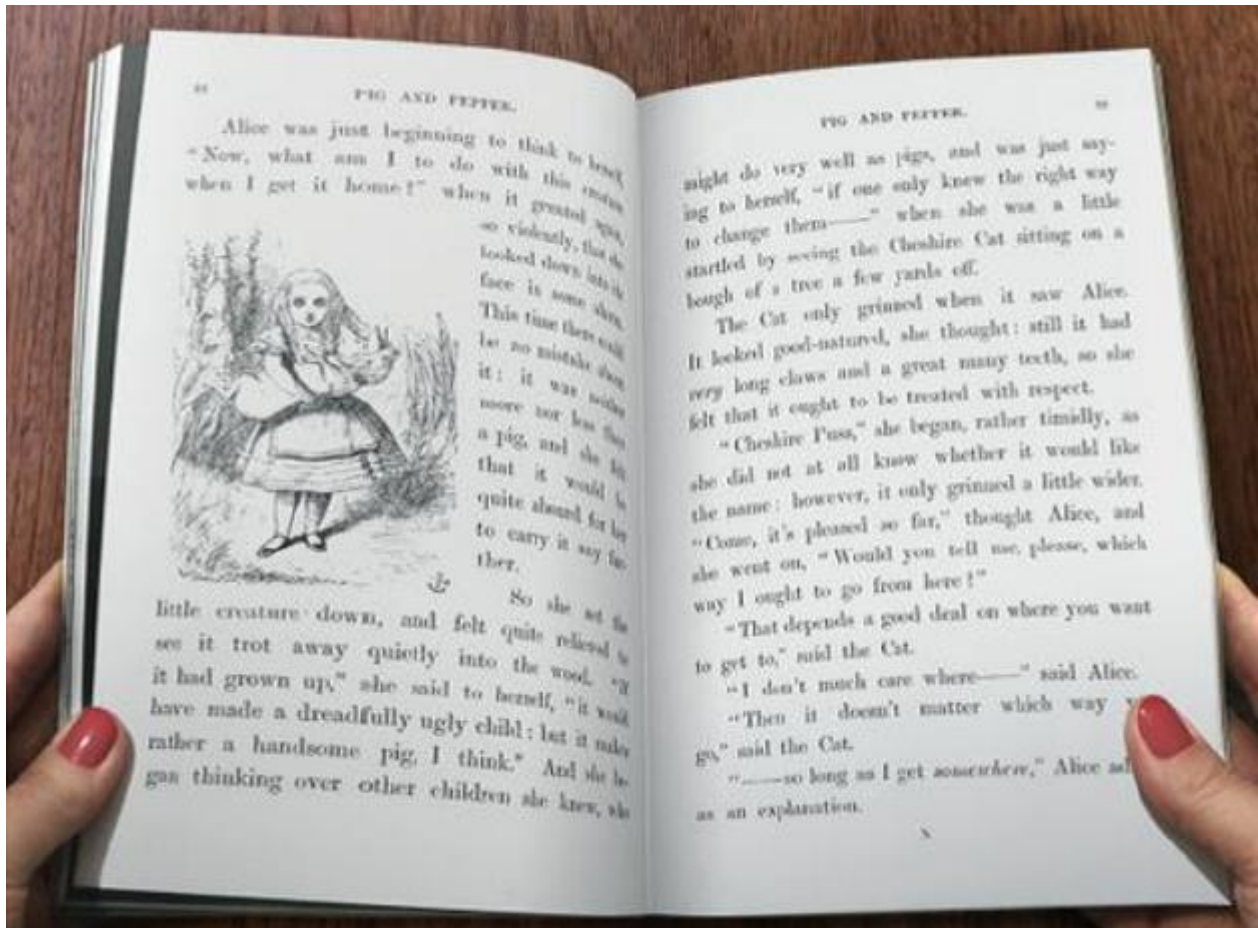 PIG AND PEPPER.
Alice was just beginning to think to herself,
"Now, what am I to do with this creature
when I get it home?" when it grunted again,
so violently, that she
looked down into its
face in some alarm.
This time there could
be no mistake about
it: it was neither
more nor less than
a pig, and she felt
that it would be
quite absurd for her
to carry it any fur-
ther.
So she set the
little creature down, and felt quite relieved to
see it trot away quietly into the wood. "If
it had grown up," she said to herself, "it would
have made a dreadfully ugly child: but it makes
rather a handsome pig, I think." And she be-
gan thinking over other children she knew, who
PIG AND PEPPER.
might do very well as pigs, and was just say-
ing to herself, "if one only knew the right way
to change them——" when she was a little
startled by seeing the Cheshire Cat sitting on a
bough of a tree a few yards off.
The Cat only grinned when it saw Alice.
It looked good-natured, she thought: still it had
very long claws and a great many teeth, so she
felt that it ought to be treated with respect.
"Cheshire Puss," she began, rather timidly, as
she did not at all know whether it would like
the name: however, it only grinned a little wider.
"Come, it's pleased so far," thought Alice, and
she went on, "Would you tell me, please, which
way I ought to go from here?"
"That depends a good deal on where you want
to get to," said the Cat.
"I don't much care where——" said Alice.
"Then it doesn't matter which way y
go," said the Cat.
"——so long as I get somewhere," Alice ad
as an explanation.